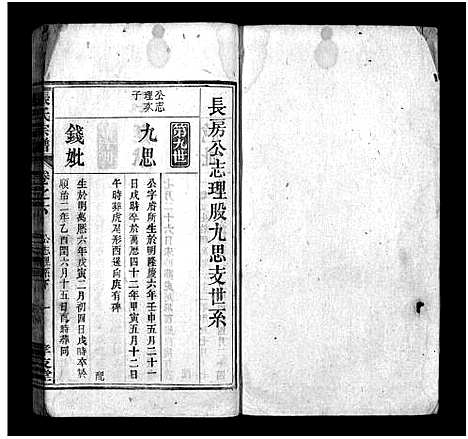 長房公志理股九思支世系
第九世
公志
理房
子
九思
公字府所生於明隆慶六年壬申五月二十一
日戌時卒於萬曆四十二年甲寅五月十二日
午時葬虎尾形酉後向庚有碑
錢妣
生於明萬曆六年戊寅二月初四日戌時卒於
順治二年乙酉閏六月十五日酉時葬同
配
張氏宗譜
卷之
公志理系下
一
孝友堂